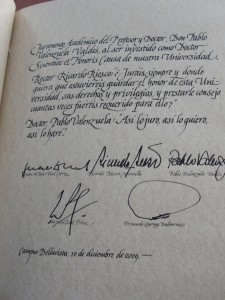 Juramento Académico del Profesor y Doctor, Don Pablo
Valenzuela Valdés, al ser investido como Doctor
Scientiae et Honoris Causa de nuestra Universidad.
Rector Ricardo Riesco: ¿Juráis, siempre y donde
quiera que estuviereis guardar el honor de esta Uni-
versidad, sus derechos y privilegios, y prestarle consejo
cuantas veces fuereis requerido para ello?
Doctor Pablo Valenzuela: Así lo juro, así lo quiero,
así lo haré.
Pablo Valenzuela Valdés
Campus Bellavista, 10 de diciembre de 2009.